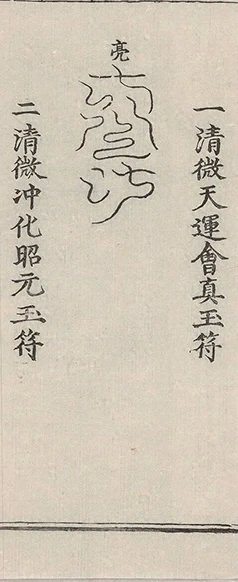 一清微天運會真玉符
亮
二清微冲化昭元玉符